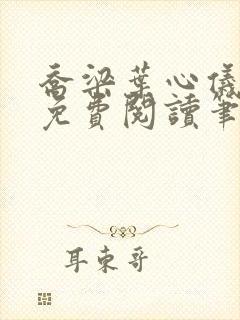 喬梁葉心儀
免費閱讀筆
耳東哥